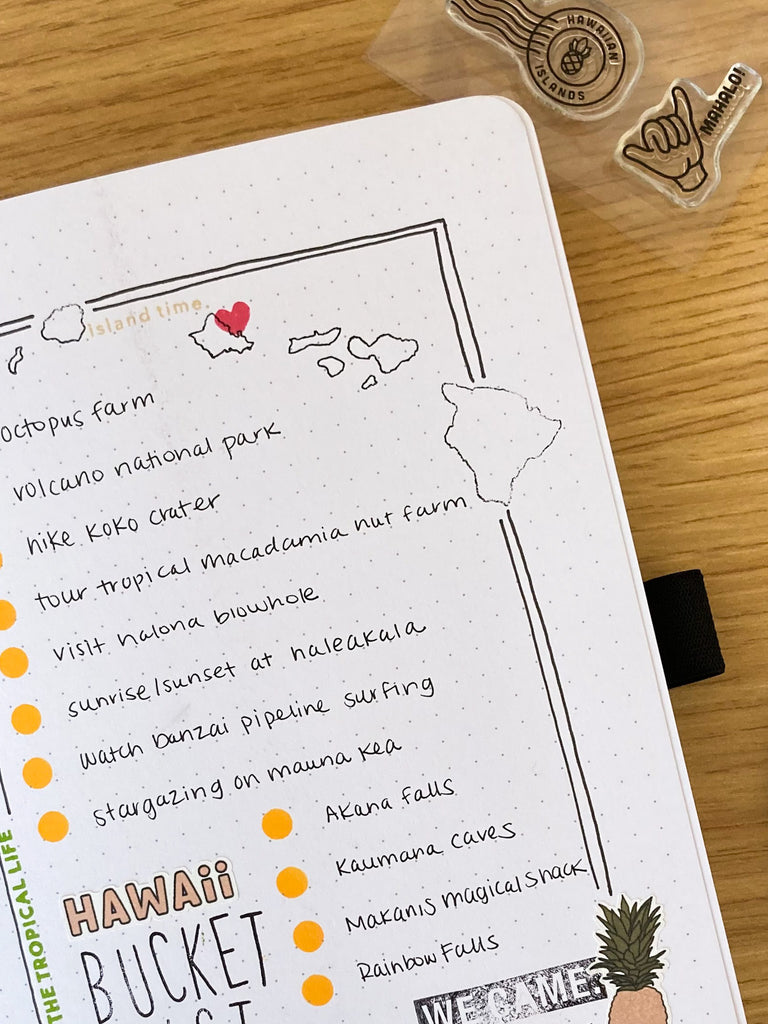 HAWAIIAN
ISLANDS
MAHALO!
island time.
octopus farm
volcano national park
hike koko crater
tour tropical macadamia nut farm
visit halona blowhole
sunrise/sunset at haleakala
watch banzai pipeline surfing
stargazing on mauna kea
Akana Falls
Kaumana Caves
Makanis magical snack
Rainbow Falls
THE TROPICAL LIFE
HAWAii
BUCKET
WE CAME